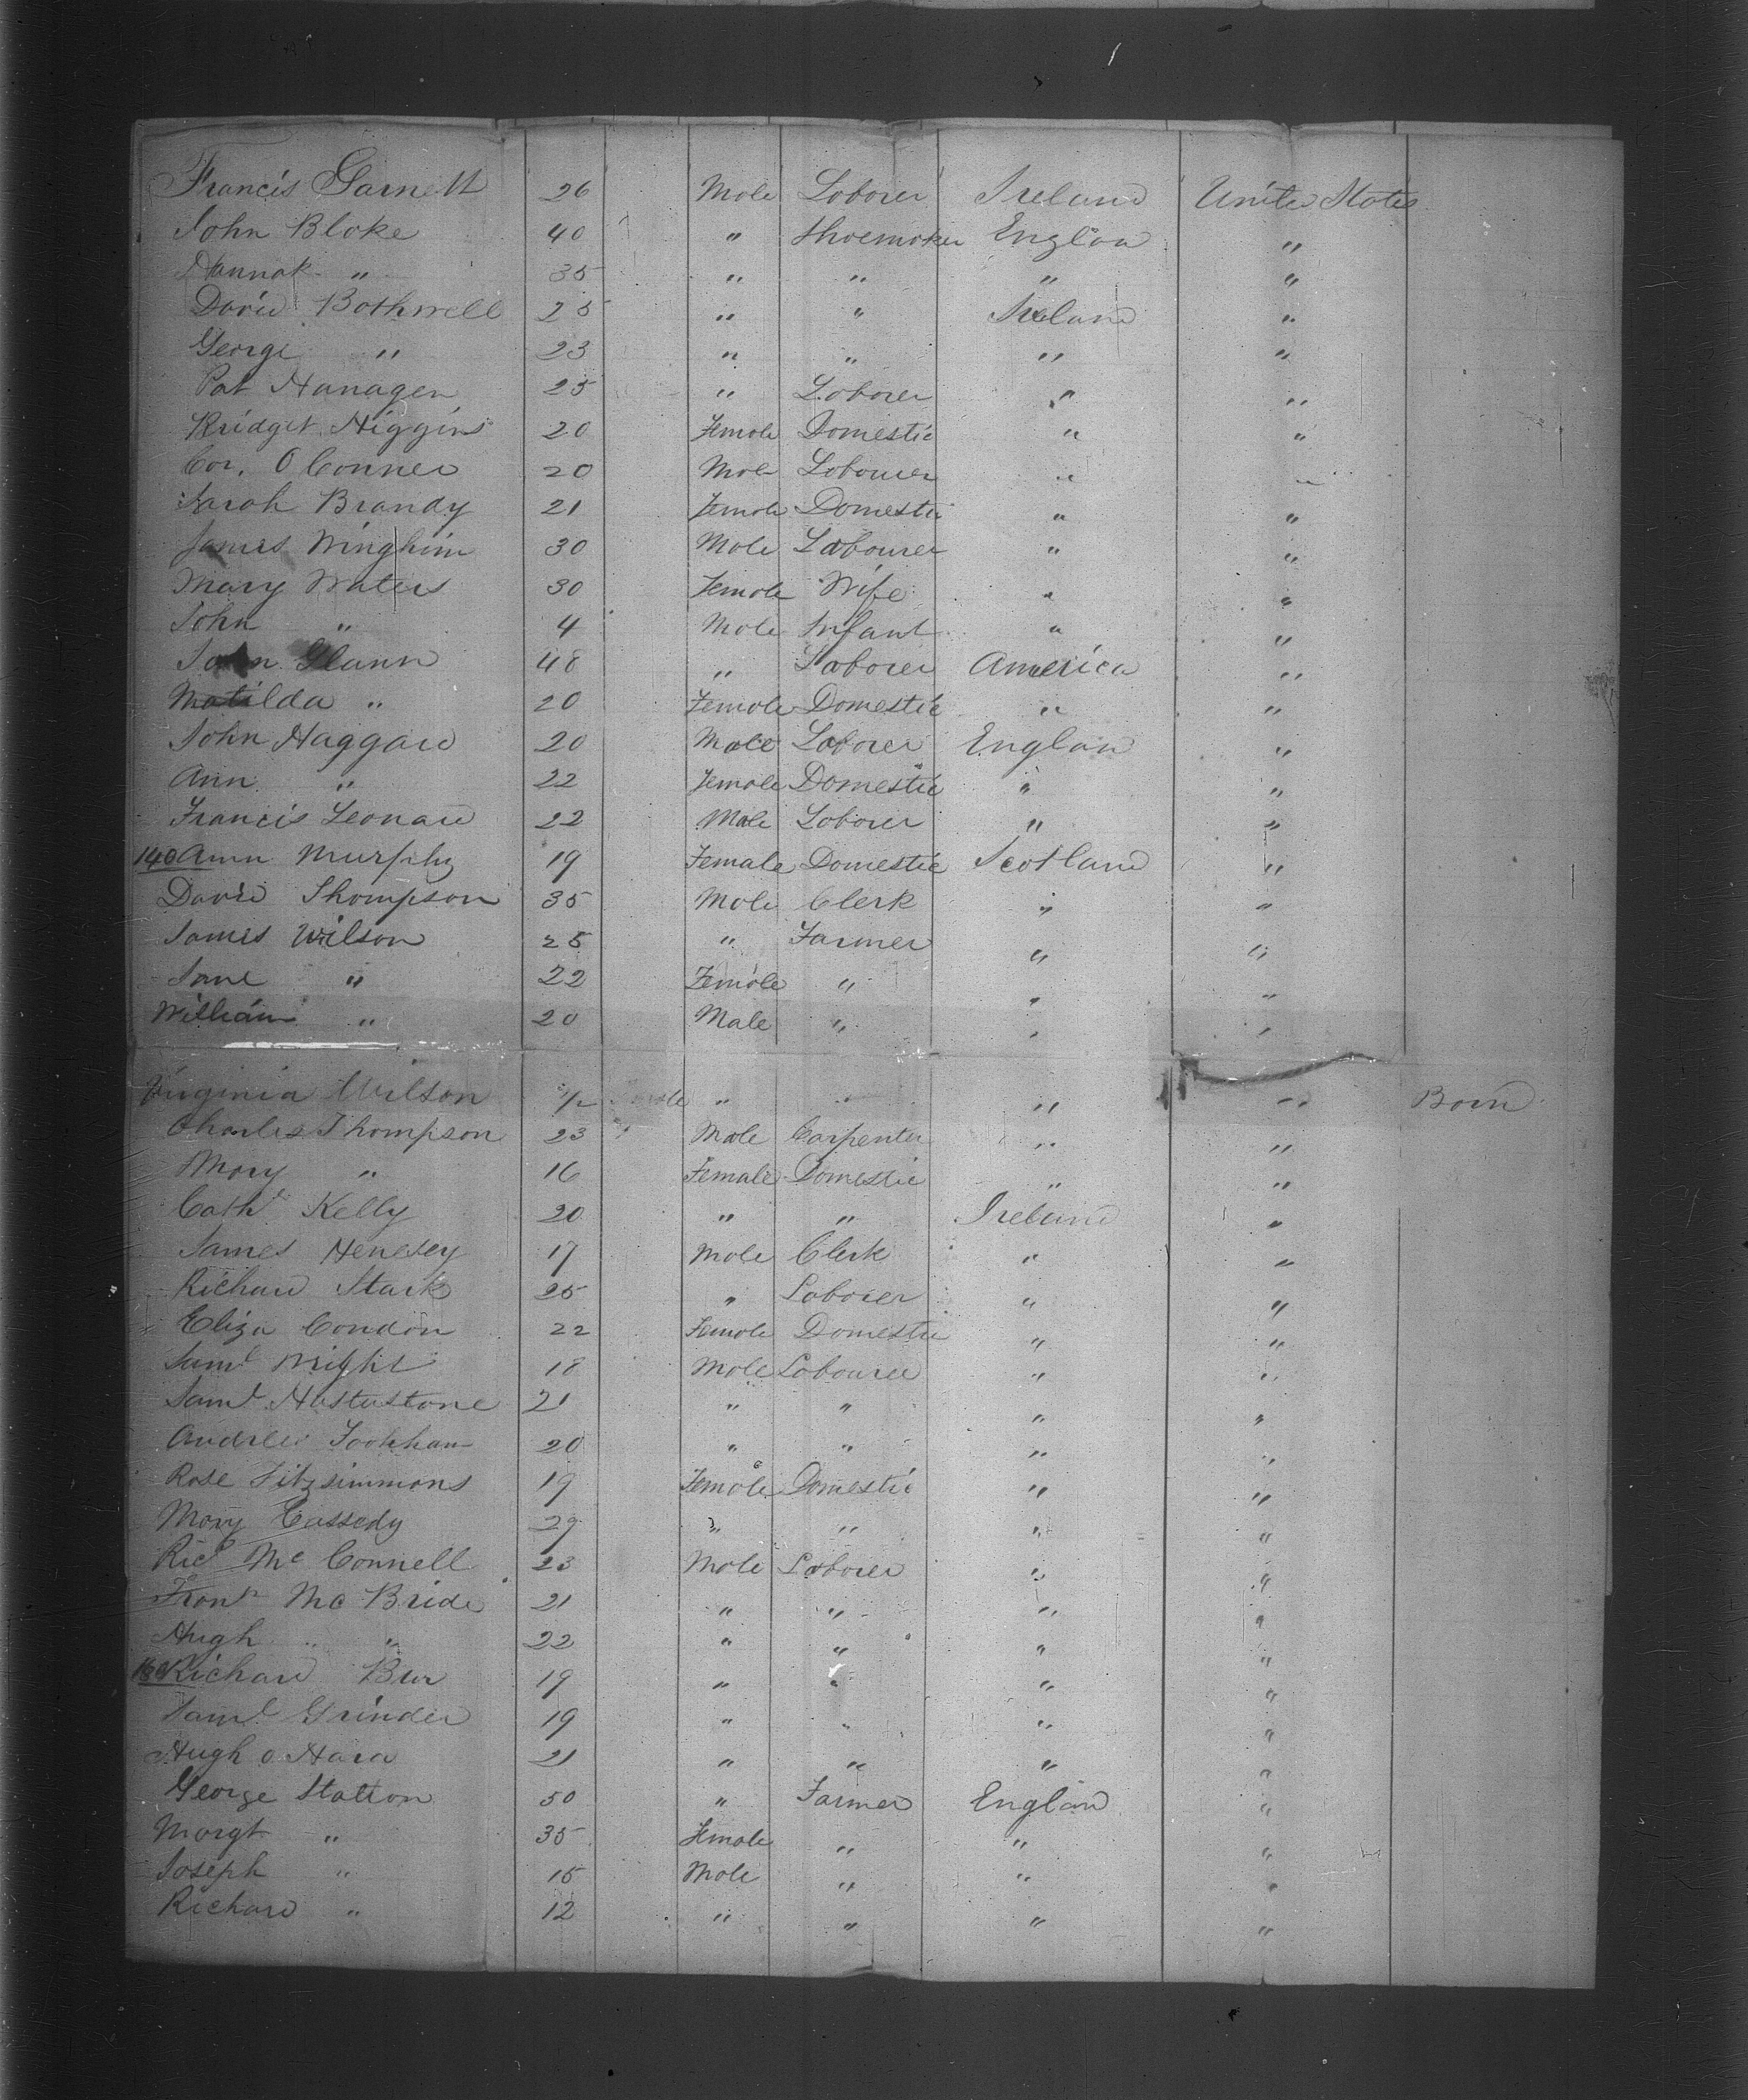 Francis Garnett 26 Male Laborer Ireland United States
John Blake 40 " Shoemaker England "
Hannah " 35 " " " "
David Bothwell 25 " " Ireland "
George " 23 " " " "
Pat Hanagen 25 " Laborer " "
Bridget Higgins 20 Female Domestic " "
Cor. O Conner 20 Male Labourer " "
Sarah Brandy 21 Female Domestic " "
James Winghim 30 Male Labourer " "
Mary Waters 30 Female Wife " "
John " 4 Male Infant " "
John Glann 48 " Laborer America "
Matilda " 20 Female Domestic " "
John Haggard 20 Male Laborer England "
Ann " 22 Female Domestic " "
Francis Leonard 22 Male Laborer " "
140 Ann Murphy 19 Female Domestic Scotland "
David Thompson 35 Male Clerk " "
James Wilson 25 " Farmer " "
Jane " 22 Female " " "
William " 20 Male " " "
Virginia Wilson " " " " Born
Charles Thompson 23 Male Carpenter " "
Mary " 16 Female Domestic " "
Cath Kelly 20 " " Ireland "
James Henesey 17 Male Clerk " "
Richard Stark 25 " Laborer " "
Eliza Condon 22 Female Domestic " "
Saml Wright 18 Male Labourer " "
Saml 21 " " " "
Andrew 20 " " " "
Rose Fitzsimmons 19 Female Domestic " "
Mary Cassedy 29 " " " "
Ricd Mc Connell 23 Male Laborer " "
Mc Bride 21 " " " "
Hugh " 22 " " " "
Richard Bur 19 " " " "
Saml Grinder 19 " " " "
Hugh o Hara 21 " " " "
George Statton 50 " Farmer England "
Margt " 35 Female " " "
Joseph " 15 Male " " "
Richard " 12 " " " "